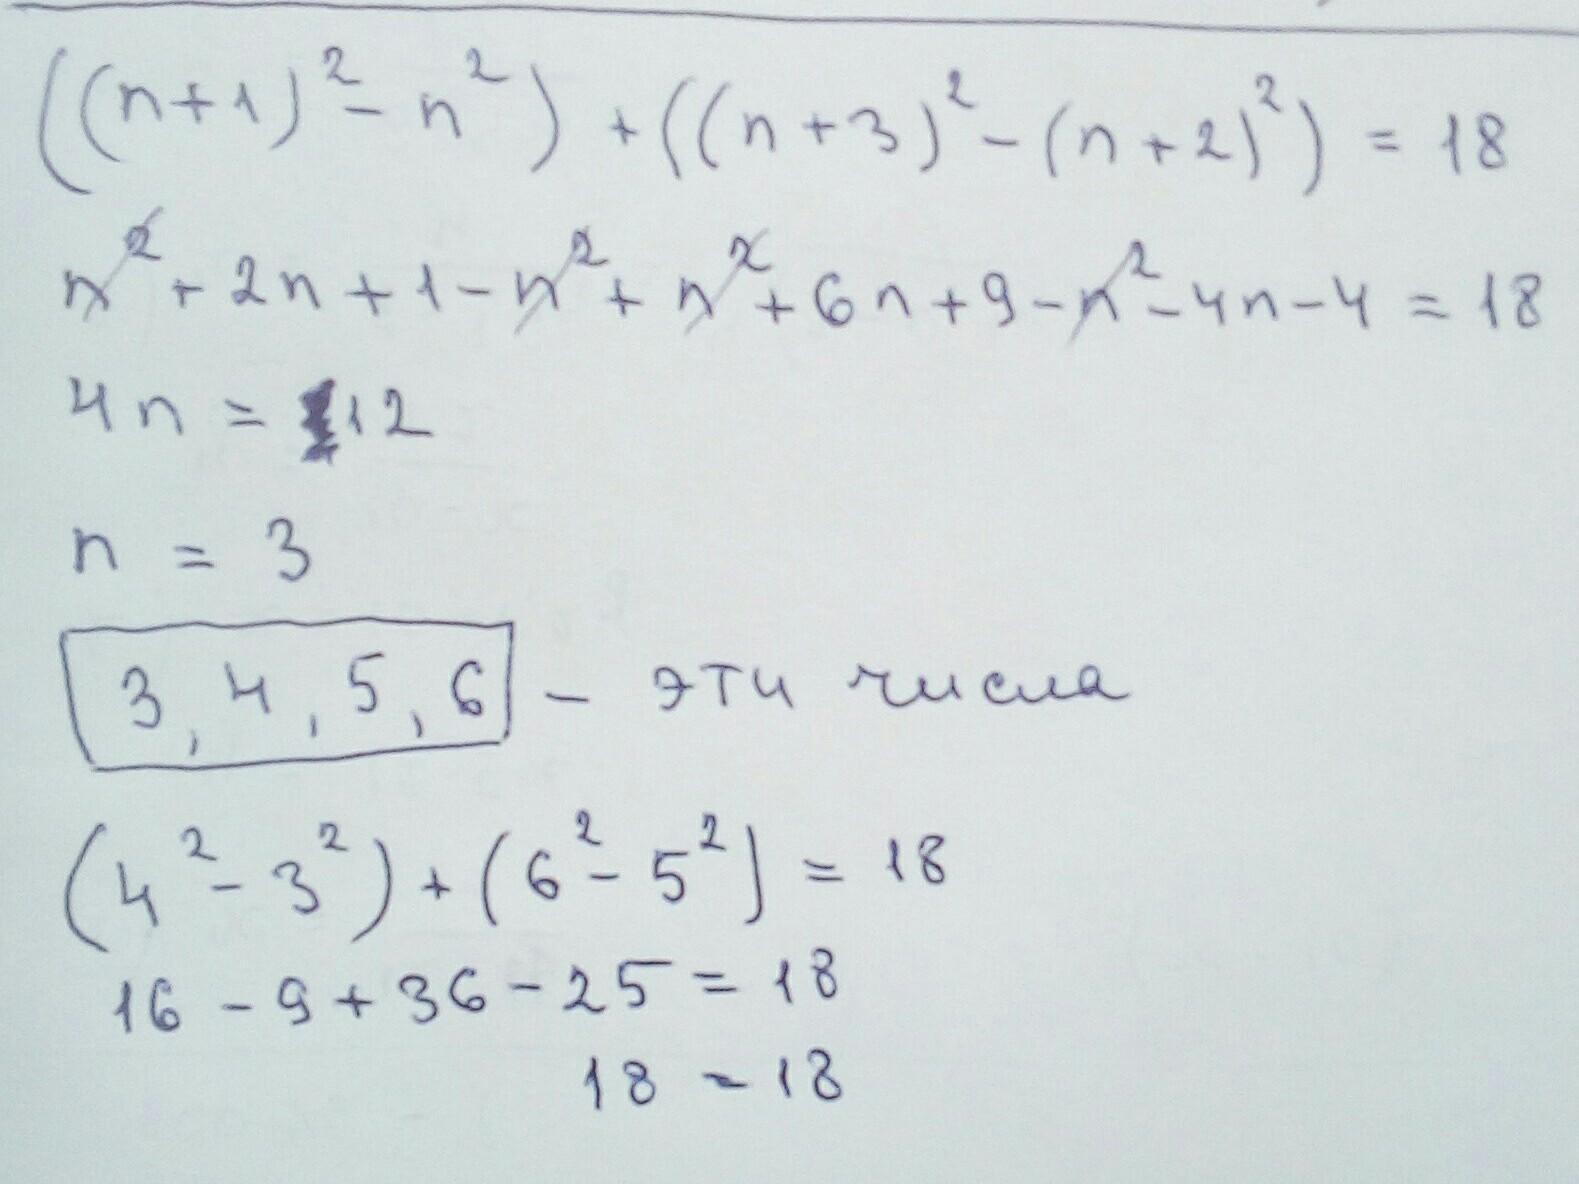 ((n+1)² - n²) + ((n+3)² - (n+2)²) = 18
n² + 2n + 1 - n² + n² + 6n + 9 - n² - 4n - 4 = 18
4n = 12
n = 3
3, 4, 5, 6 - эти числа
(4² - 3²) + (6² - 5²) = 18
16 - 9 + 36 - 25 = 18
18 = 18